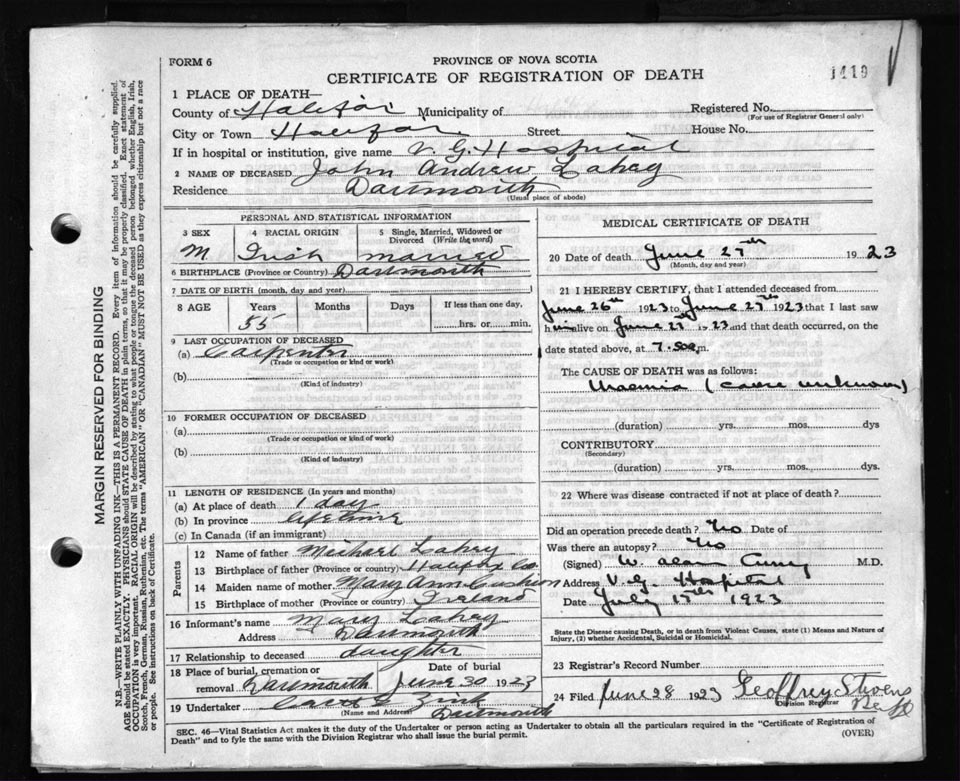 FORM 6
PROVINCE OF NOVA SCOTIA
CERTIFICATE OF REGISTRATION OF DEATH
1419
1 PLACE OF DEATH—
County of Halifax Municipality of Registered No.
(For use of Registrar General only)
City or Town Halifax Street House No.
If in hospital or institution, give name V. G. Hospital
2 NAME OF DECEASED John Andrew Lahey
Residence Dartmouth
(Usual place of abode)
PERSONAL AND STATISTICAL INFORMATION
3 SEX 4 RACIAL ORIGIN 5 Single, Married, Widowed or Divorced (Write the word)
M Irish married
6 BIRTHPLACE (Province or Country) Dartmouth
7 DATE OF BIRTH (month, day and year)
8 AGE Years Months Days If less than one day,
55 hrs. or min.
9 LAST OCCUPATION OF DECEASED
(a) Carpenter
(Trade or occupation or kind or work)
(b)
(Kind of industry)
10 FORMER OCCUPATION OF DECEASED
(a)
(Trade or occupation or kind of work)
(b)
(Kind of industry)
11 LENGTH OF RESIDENCE (In years and months)
(a) At place of death 1 day
(b) In province lifetime
(c) In Canada (if an immigrant)
Parents
12 Name of father Michael Lahey
13 Birthplace of father (Province or country) Halifax Co.
14 Maiden name of mother Mary Ann
15 Birthplace of mother (Province or country) Ireland
16 Informant's name Mary Lahey
Address Dartmouth
17 Relationship to deceased daughter
18 Place of burial, cremation or removal Dartmouth Date of burial June 30 1923
19 Undertaker
(Name and Address) Dartmouth
MEDICAL CERTIFICATE OF DEATH
20 Date of death June 27th 1923
(Month, day and year)
21 I HEREBY CERTIFY, that I attended deceased from
June 26th 1923 to June 27th 1923 that I last saw
him alive on June 27 1923 and that death occurred, on the
date stated above, at 7.50 m.
The CAUSE OF DEATH was as follows:
Uraemia (cause unknown)
(duration) yrs. mos. dys
CONTRIBUTORY
(Secondary)
(duration) yrs. mos. dys.
22 Where was disease contracted if not at place of death?
Did an operation precede death? No Date of
Was there an autopsy? No
(Signed) W. Alan Curry M.D.
Address V.G. Hospital
Date July 15th 1923
State the Disease causing Death, or in death from Violent Causes, state (1) Means and Nature of
Injury, (2) whether Accidental, Suicidal or Homicidal.
23 Registrar's Record Number
24 Filed June 28 1923 Geoffrey Stevens
Division Registrar
SEC. 46—Vital Statistics Act makes it the duty of the Undertaker or person acting as Undertaker to obtain all the particulars required in the "Certificate of Registration of
Death" and to fyle the same with the Division Registrar who shall issue the burial permit.
(OVER)
MARGIN RESERVED FOR BINDING
N.B.—WRITE PLAINLY WITH UNFADING INK—THIS IS A PERMANENT RECORD. Every item of information should be carefully supplied.
AGE should be stated EXACTLY. PHYSICIANS should STATE CAUSE OF DEATH in plain terms, so that it may be properly classified. Exact statement of
OCCUPATION is very important. RACIAL ORIGIN will be described by stating to what people or tongue the deceased person belonged whether English, Irish,
Scotch, French, German, Russian, Ruthenian, etc. The terms "AMERICAN" or "CANADIAN" MUST NOT BE USED as they express citizenship but not a race
or people. See instructions on back of Certificate.